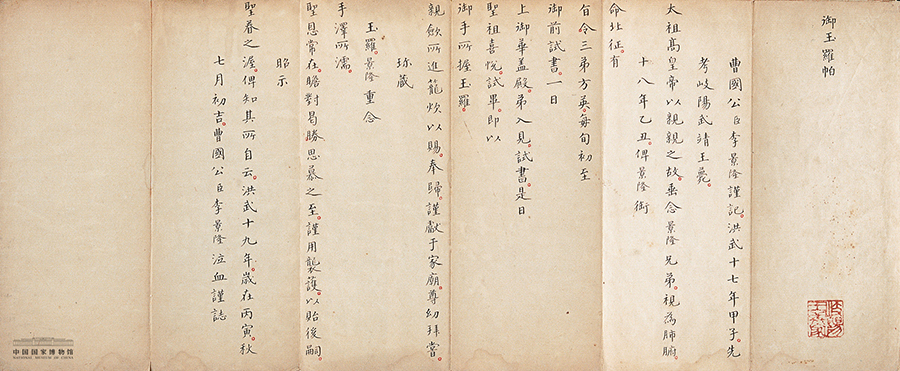 御玉羅帕
曹國公臣李景隆謹記。洪武十七年甲子。先
考岐陽武靖王薨。
太祖高皇帝以親親之故。垂念景隆兄弟。視為肺腑。
十八年乙丑。俾景隆銜
命北征。有
旨令三弟方英。每旬初至
御前試書。一日
上御華蓋殿。弟入見試書。是日
聖祖喜悅。試畢。即以
御手所握玉羅。
親斂所進龍炊以賜。奉歸。謹獻于家廟。尊幼拜嘗。
珎藏
玉羅。景隆重念
手澤所濡。
聖恩常在。瞻對曷勝思慕之至。謹用襲護。以貽後嗣。
昭示
聖眷之渥。俾知其所自云。洪武十九年。歲在丙寅。秋
七月初吉。曹國公臣李景隆泣血謹誌
中国国家博物馆
NATIONAL MUSEUM OF CHINA